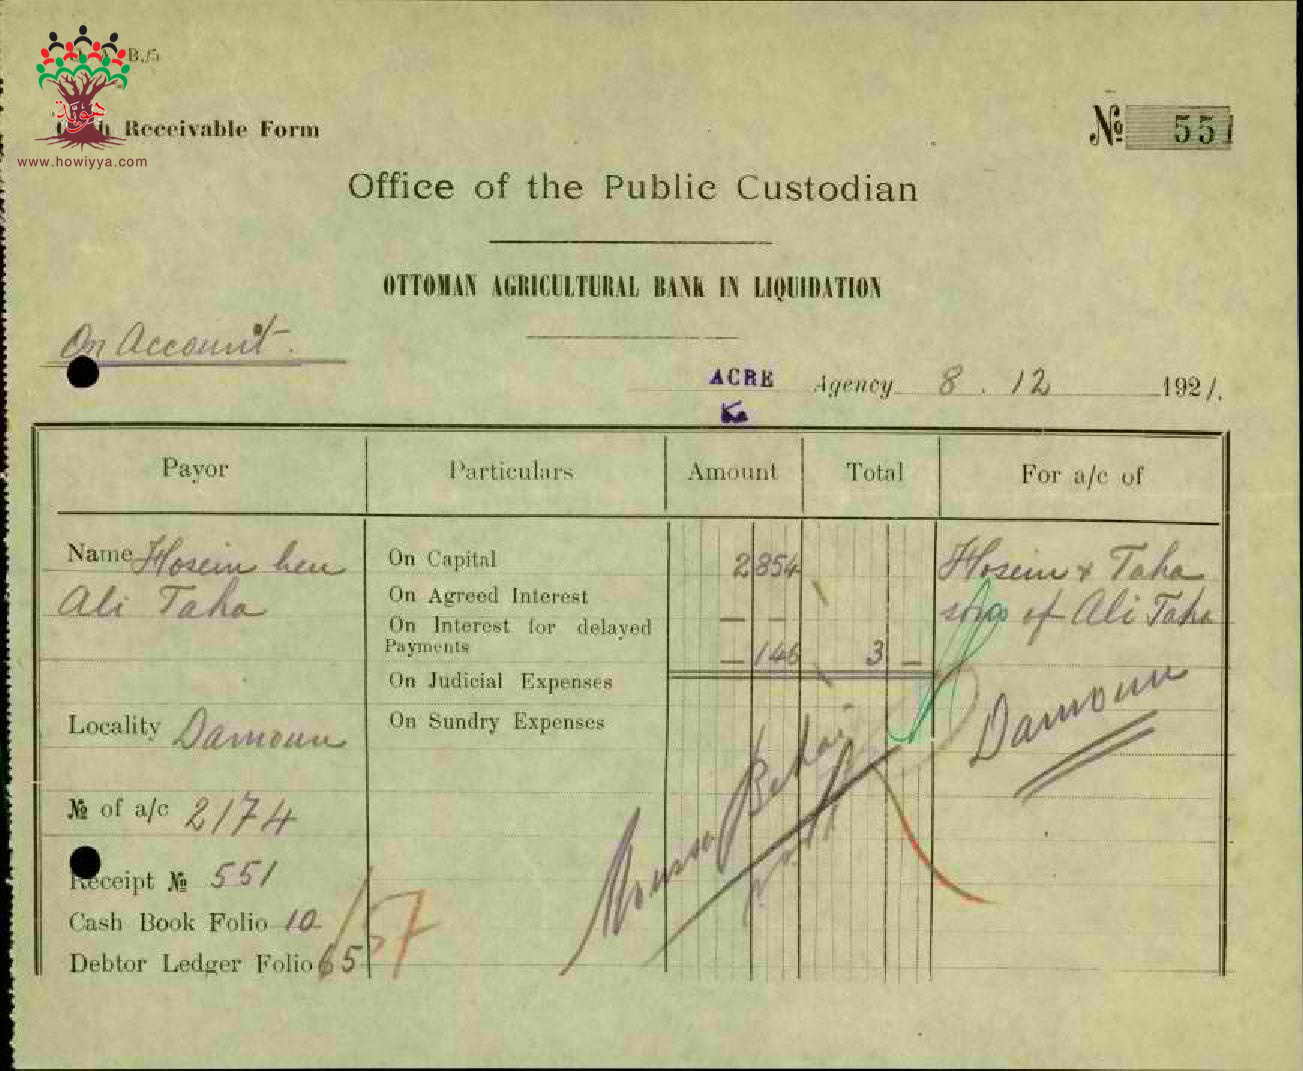 B./5
هوية
www.howiyya.com
Receivable Form
№ 551
Office of the Public Custodian
OTTOMAN AGRICULTURAL BANK IN LIQUIDATION
On Account.
ACRE Agency 8.12 1921.
Payor Particulars Amount Total For a/c of
Name Hosein ben
Ali Taha
On Capital 2 854
On Agreed Interest — —
On Interest for delayed
Payments — 146 3 —
On Judicial Expenses
On Sundry Expenses
Hosein & Taha
sons of Ali Taha
Damoun
Locality Damoun
№ of a/c 2174
Receipt № 551
Cash Book Folio 10
Debtor Ledger Folio 65
57
Moussa